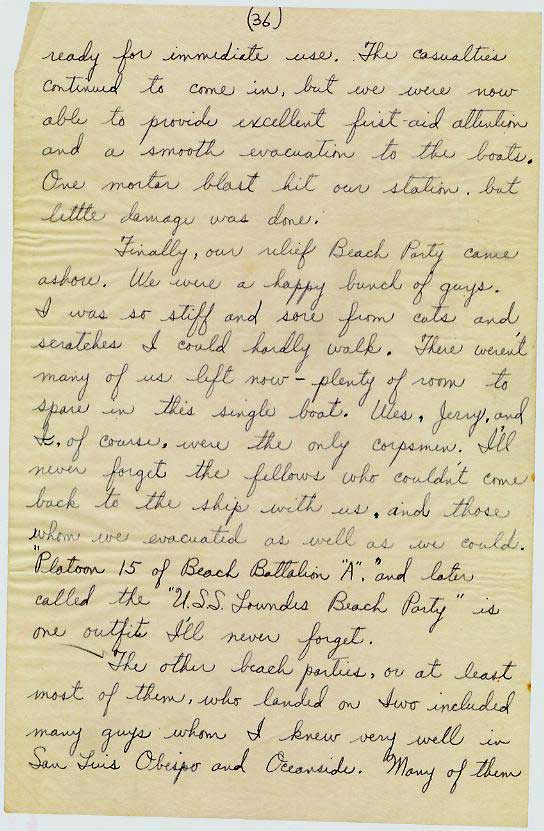 (36)
ready for immediate use. The casualties
continued to come in, but we were now
able to provide excellent first-aid attention
and a smooth evacuation to the boats.
One mortar blast hit our station, but
little damage was done.
Finally, our relief Beach Party came
ashore. We were a happy bunch of guys.
I was so stiff and sore from cuts and
scratches I could hardly walk. There weren't
many of us left now - plenty of room to
spare in this single boat. Wes, Jerry, and
I, of course, were the only corpsmen. I'll
never forget the fellows who couldn't come
back to the ship with us, and those
whom we evacuated as well as we could.
"Platoon 15 of Beach Battalion "A"," and later
called the "U.S.S. Lowndes Beach Party" is
one outfit I'll never forget.
The other beach parties, or at least
most of them, who landed on Iwo included
many guys whom I knew very well in
San Luis Obispo and Oceanside. Many of them